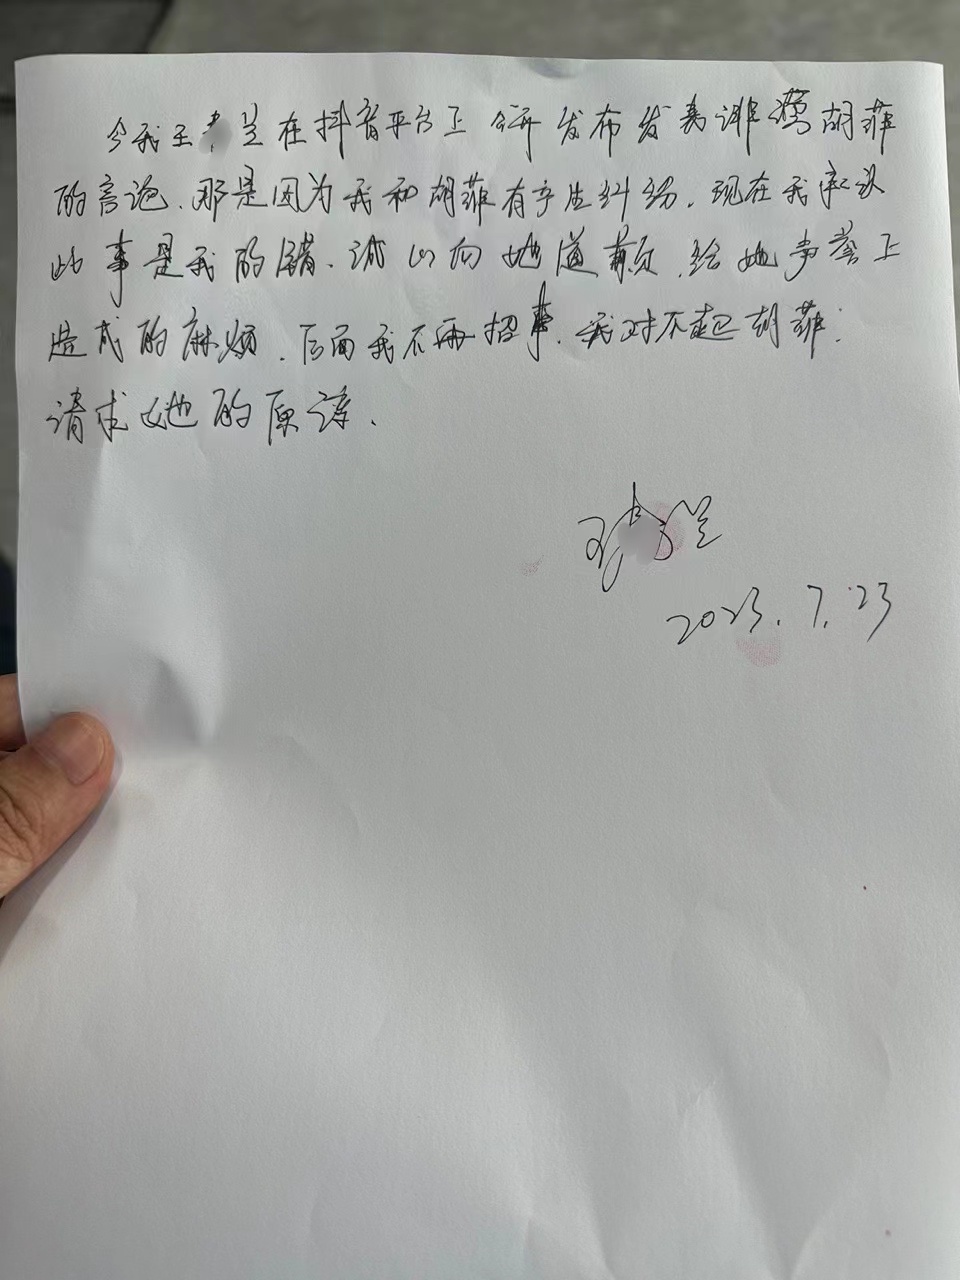 今我王 呈在抖音平台上公开发布发表诽谤胡菲
的言论、那是因为我和胡菲有产生纠纷。现在我承认
此事是我的错、诚心向她道歉，给她声誉上
造成的麻烦，后面我不再招事、我对不起胡菲；
请求她的原谅、
王 呈
2023.7.23